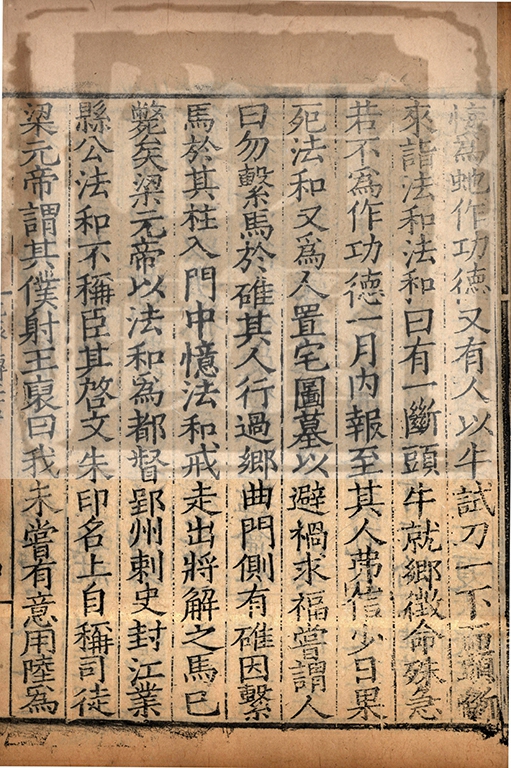 懐為虵作功德又有人以牛試刀一下而頭斷
來詣法和法和曰有一斷頭牛就鄉徴命殊急
若不為作功德一月內報至其人弗信少日果
死法和又為人置宅圖墓以避禍求福嘗謂人
曰勿繫馬於碓其人行過鄉曲門側有碓因繫
馬於其柱入門中憶法和戒走出將解之馬已
斃矣梁元帝以法和為都督郢州刺史封江業
縣公法和不稱臣其啓文朱印名上自稱司徒
梁元帝謂其僕射王裒曰我未嘗有意用陸為